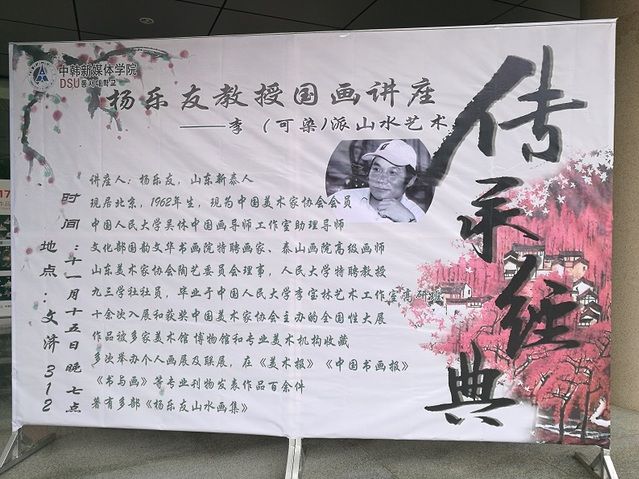 中韩新媒体学院
DSU동서대학교
杨乐友教授国画讲座
——李（可染）派山水艺术
传承经典
讲座人：杨乐友，山东新泰人
现居北京，1962年生，现为中国美术家协会会员
中国人民大学吴休中国画导师工作室助理导师
文化部国韵文华书画院特聘画家、泰山画院高级画师
山东美术家协会陶艺委员会理事，人民大学特聘教授
九三学社社员，毕业于中国人民大学李宝林艺术工作室高研班
十余次入展和获奖中国美术家协会主办的全国性大展
作品被多家美术馆博物馆和专业美术机构收藏
多次举办个人画展及联展，在《美术报》《中国书画报》
《书与画》等专业刊物发表作品百余件
著有多部《杨乐友山水画集》
时间：十一月十五日晚七点
地点：文济312
17